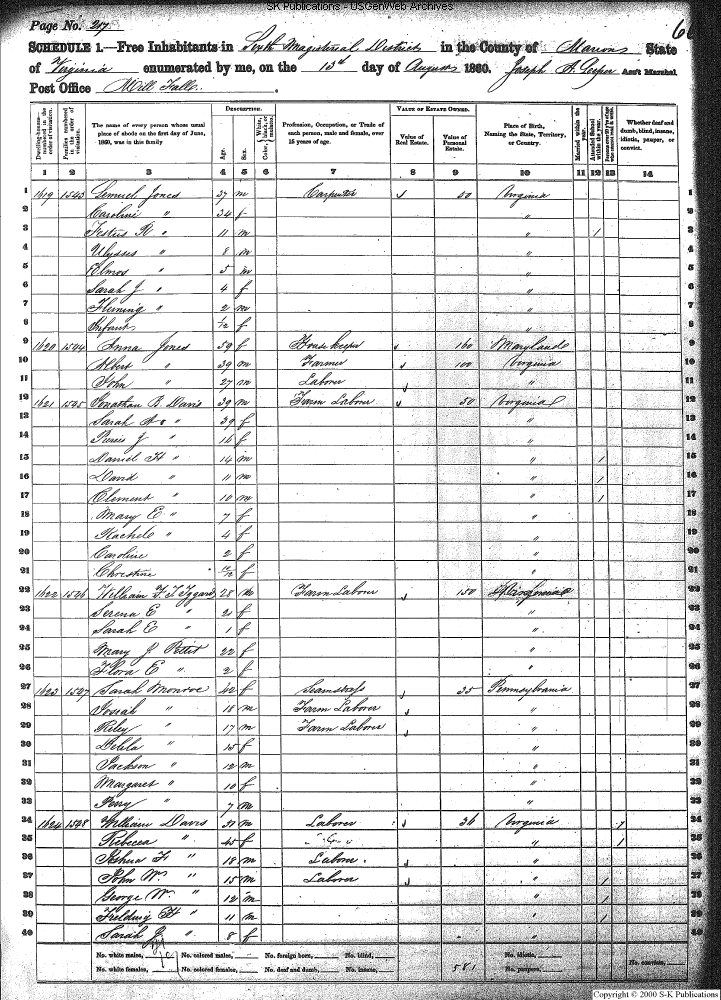 SK Publications - USGenWeb Archives
Page No. 217
SCHEDULE 1.—Free Inhabitants in Sixth Magisterial District in the County of Marion State
of Virginia enumerated by me, on the 13th day of August 1860. Joseph Ass't Marshal.
Post Office
Dwelling-houses—numbered in the order of visitation.
Families numbered in the order of visitation.
The name of every person whose usual place of abode on the first day of June, 1860, was in this family
DESCRIPTION.
Age.
Sex.
Color, White, black, or mulatto.
Profession, Occupation, or Trade of each person, male and female, over 15 years of age.
VALUE OF ESTATE OWNED.
Value of Real Estate.
Value of Personal Estate.
Place of Birth, Naming the State, Territory, or Country.
Married within the year.
Attended School within the year.
Whether deaf and dumb, blind, insane, idiotic, pauper, or convict.
1 2 3 4 5 6 7 8 9 10 11 12 13 14
1 1619 1543 Jones 37 m Carpenter 50 Virginia 1
2 Caroline " 34 f " 2
3 R " 11 m " 1 3
4 Ulysses " 8 m " 4
5 " 5 m " 5
6 Sarah J " 4 f " 6
7 Fleming " 2 m " 7
8 Infant 1/12 f " 8
9 1620 1544 Anna Jones 59 f House Keeper 160 Maryland 9
10 Albert " 39 m Farmer 100 Virginia 10
11 John " 27 m Laborer " 11
12 1621 1545 Jonathan R. Davis 39 m Farm Laborer 50 Virginia 12
13 Sarah " 39 f " 13
14 J " 16 f " 14
15 Daniel H " 14 m " 1 15
16 David " 11 m " 1 16
17 Clement " 10 m " 1 17
18 Mary E " 7 f " 18
19 Rachel " 4 f " 19
20 Caroline 2 f " 20
21 Christine " f " 21
22 1622 1526 William F. T. 28 m Farm Laborer 150 22
23 Serena E " 21 f " 23
24 Sarah E " 1 f " 24
25 Mary J Pettit 22 f " 25
26 Flora E " 2 f " 26
27 1623 1527 Sarah Monroe 42 f Seamstress 35 Pennsylvania 27
28 Josiah " 18 m Farm Laborer " 28
29 Riley " 17 m Farm Laborer " 29
30 " 15 f " 30
31 Jackson " 12 m " 31
32 Margaret " 10 f " 32
33 Perry " 7 m " 33
34 1624 1528 William Davis m Laborer 36 Virginia 34
35 Rebecca " 45 f " 1 35
36 Joshua F. " 18 m Laborer " 36
37 John W. " 15 m Laborer " 1 37
38 George W. " 12 m " 1 38
39 H " 11 m " 1 39
40 Sarah " 8 f " 40
No. white males, No. colored males, No. foreign born, No. blind, No. idiotic, No. convicts,
No. white females, 19 No. colored females, No. deaf and dumb, No. insane, 581 No. paupers,
Copyright © 2000 S-K Publications